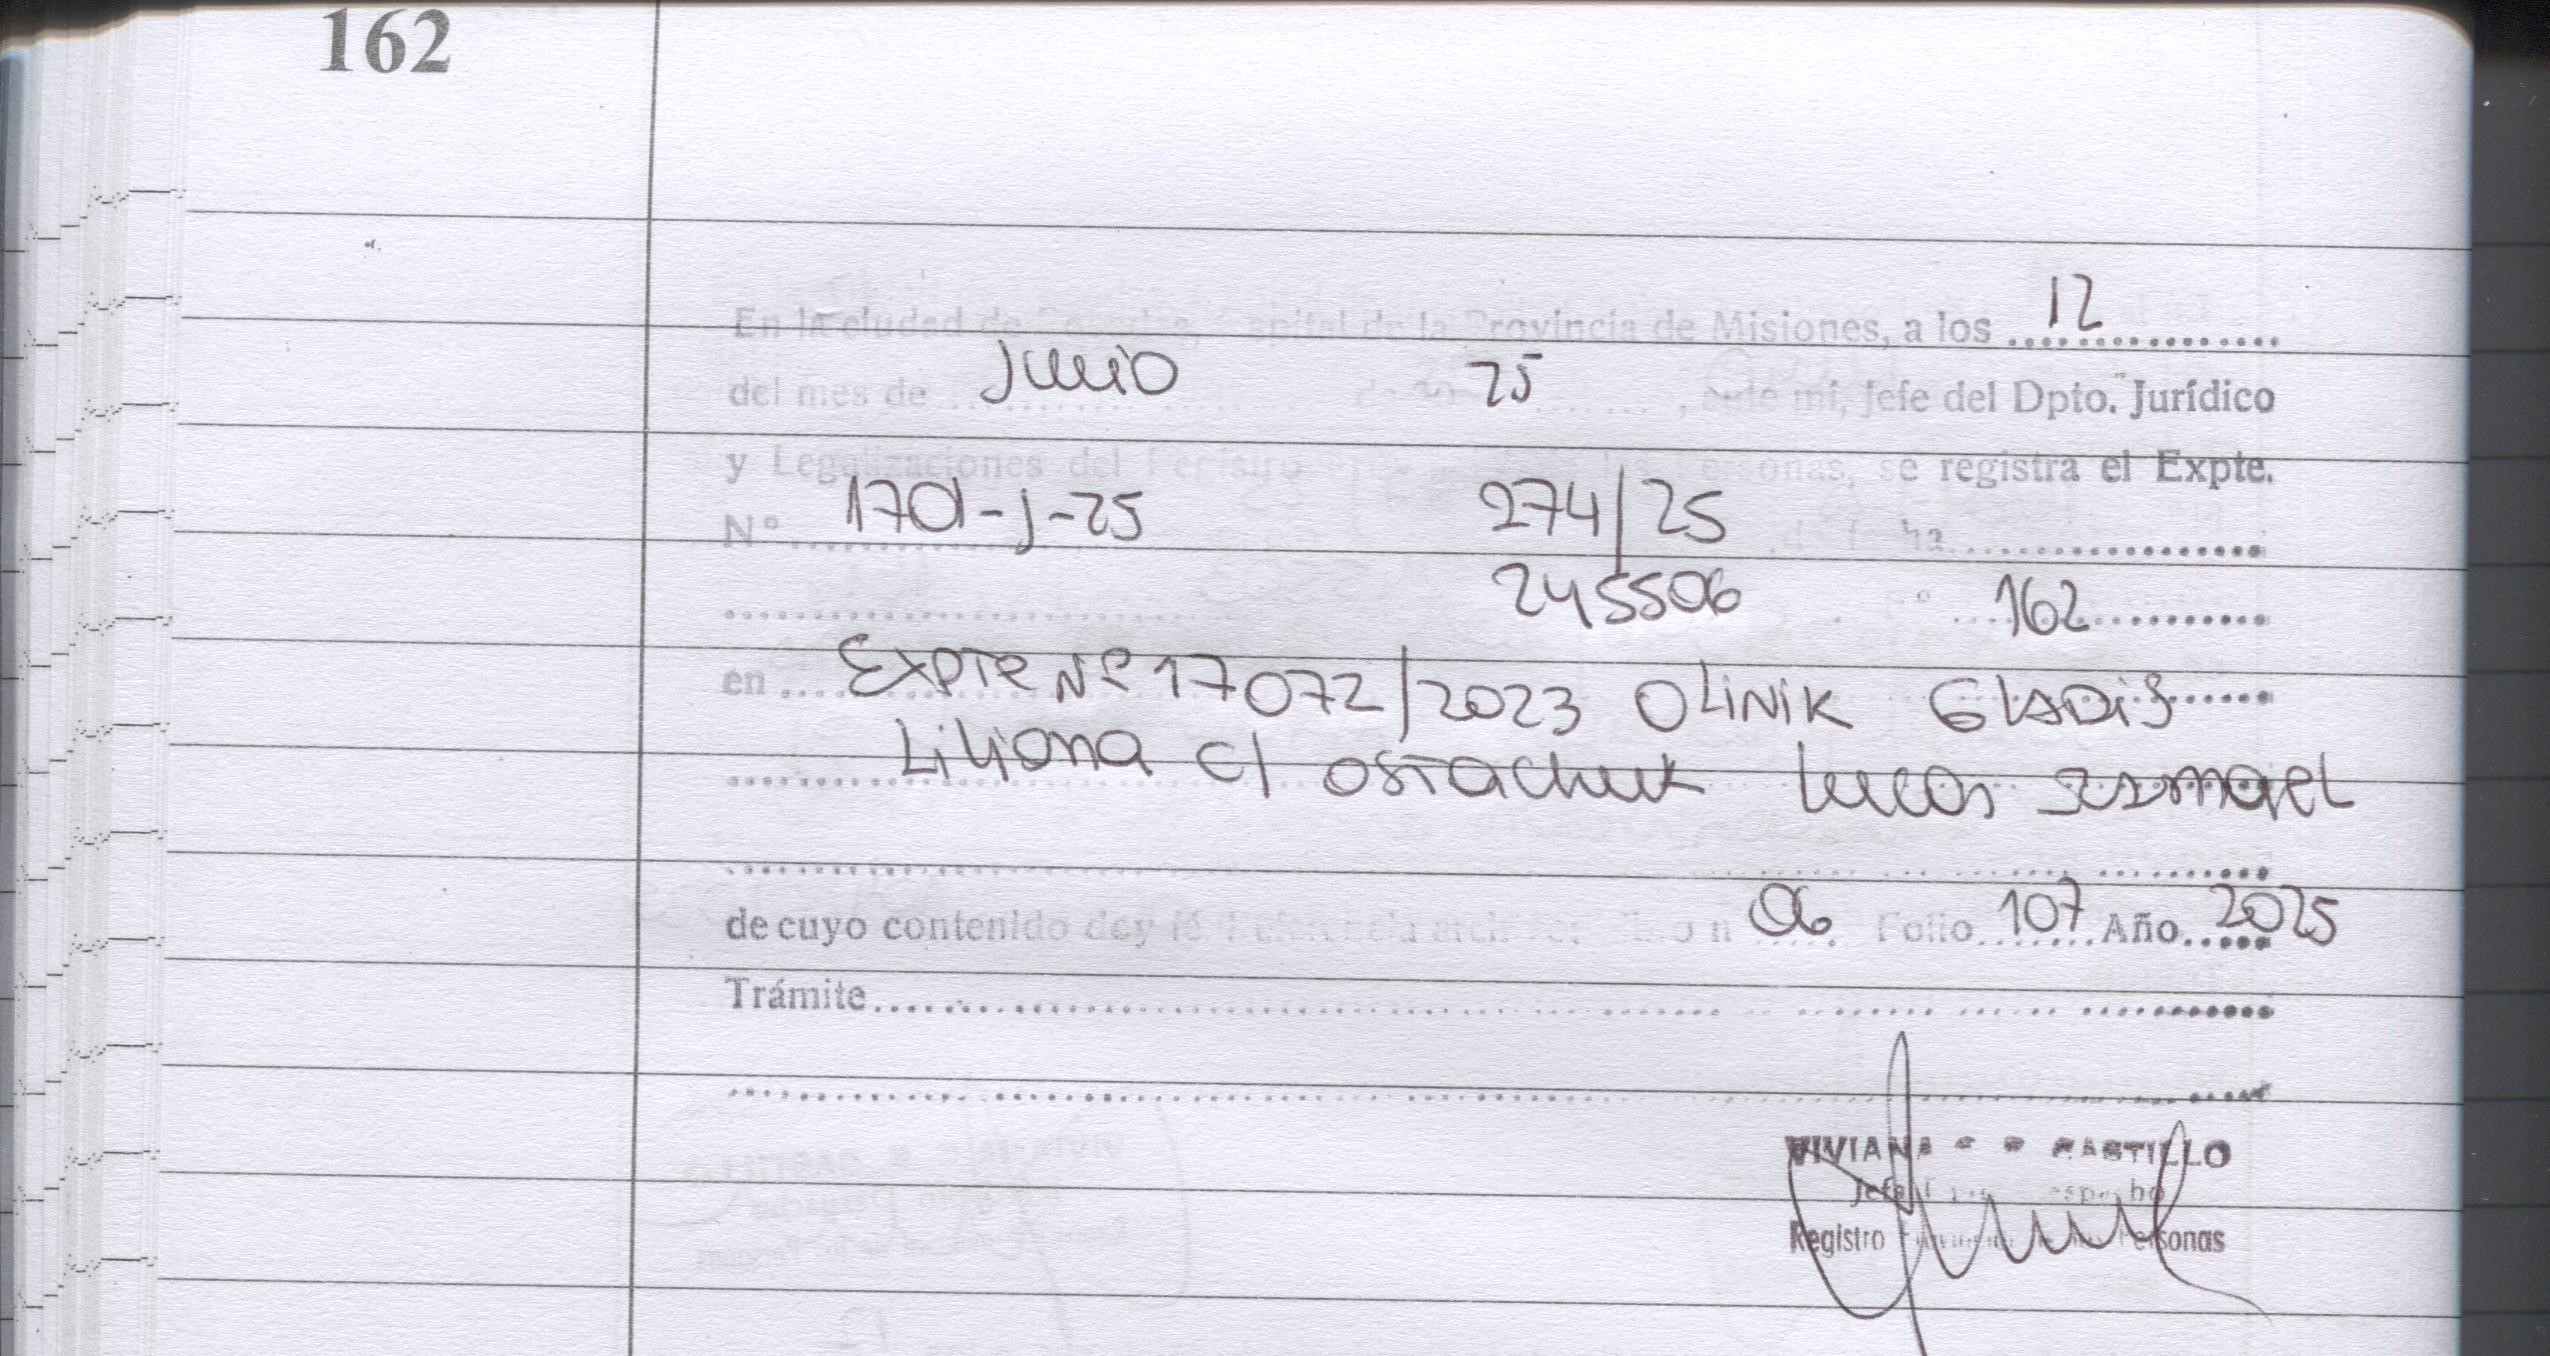 162
En la ciudad de Posadas, Capital de la Provincia de Misiones, a los 12
del mes de Junio de 25, ante mí, Jefe del Dpto. Jurídico
y Legalizaciones del Registro de las Personas, se registra el Expte.
N° 1701-J-25 274/25 de fecha
245506 F° 162
en Expte Nº 17072/2023 OLINIK GLADIS
Liliana c/ OSTACHUK Lucas ISMAEL
de cuyo contenido doy fé. 06 Folio 107 Año 2025
Trámite
VIVIANA CASTILLO
Jefa Despacho
Registro Personas